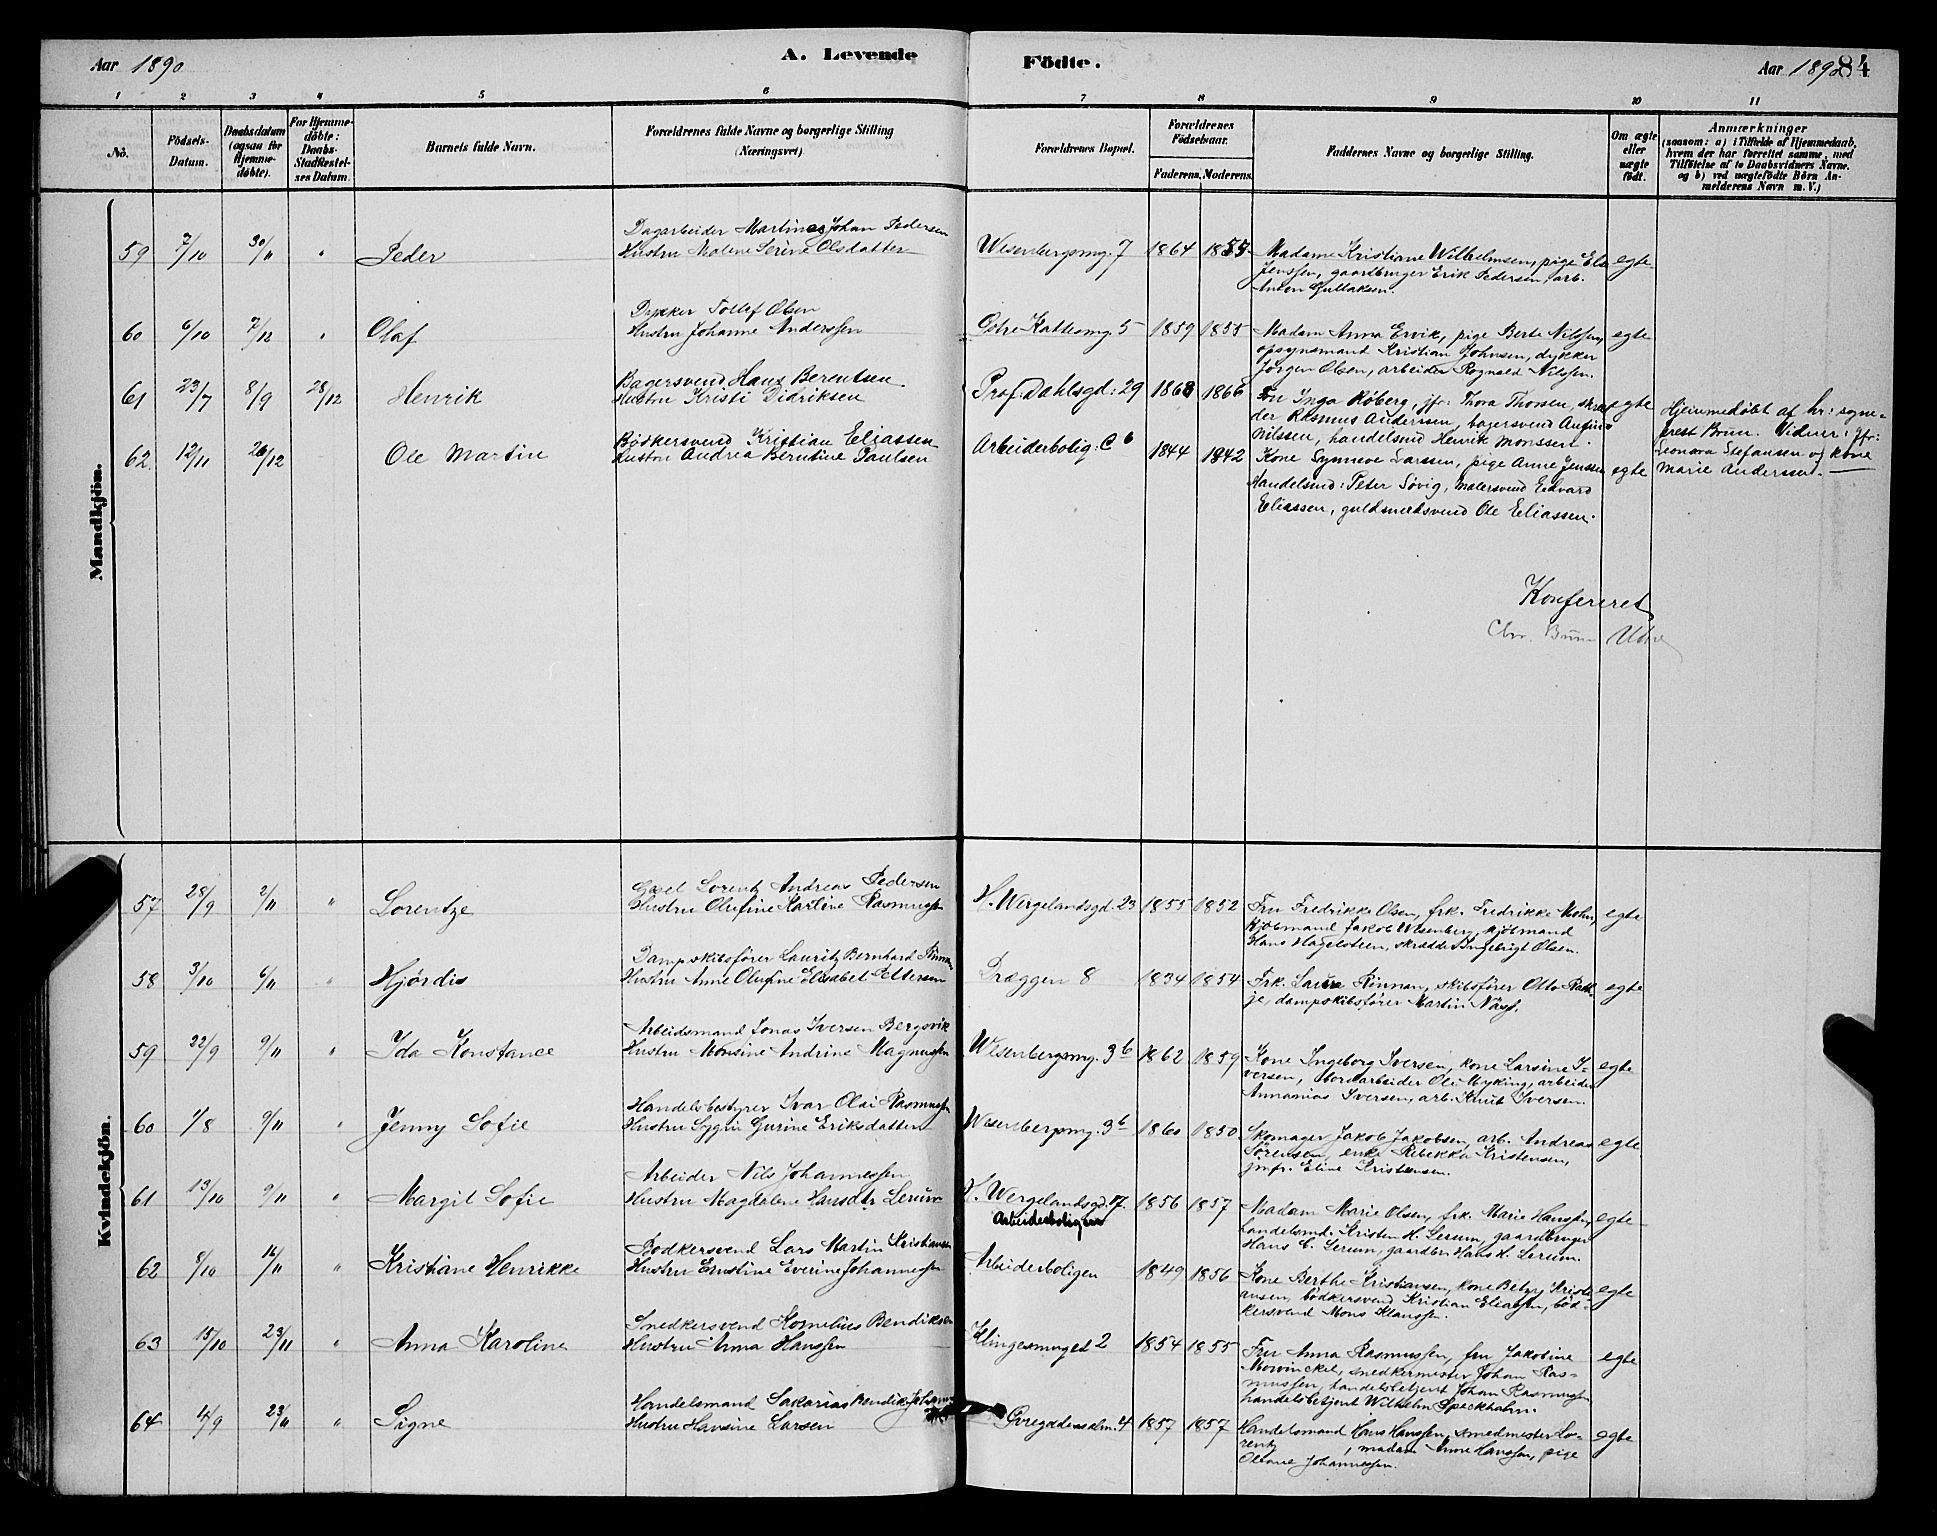 Aar 1890
A. Levende
Födte.
Aar 1890
84
1 2 3 4 5 6 7 8 9 10 11
No.
Födsels-
Datum.
Daabsdatum
(ogsaa for
Hjemme-
döbte).
For Hjemme-
döbte:
Daabs-
Stadfæstel-
ses Datum.
Barnets fulde Navn.
Forældrenes fulde Navne og borgerlige Stilling
(Næringsvei)
Forældrenes Bopæl.
Forældrenes
Födselsaar.
Faderens. Moderens.
Faddernes Navne og borgerlige Stilling.
Om ægte
eller
uægte
födt.
Anmærkninger
(saasom: a) i Tilfælde af Hjemmedaab,
hvem der har forrettet samme, med
Tilföielse af to Daabsvidners Navne,
og b) ved uægtefödte Börn An-
melderens Navn m. V.)
Mandkjön.
59 7/10 30/11 " Peder
Dagarbeider Martines Johan Pedersen
Hustru Malene Serine Olsdatter
Wesenbergsmg. 7 1864 1855
Madame Kristiane Wilhelmsen, pige Else
Jenssen, gaardbruger Erik Pedersen, arb.
Anton Gullaksen.
egte
60 6/10 7/12 " Olaf
Dykker Tollef Olsen
Hustru Johanne Anderssen
Østre Kattesmg. 5 1859 1855
Madam Anna Ervik, pige Berte Nilssen,
opsynsmand Kristian Johnsen, dykker
Jørgen Olsen, arbeider Rognald Nilssen.
egte
61 23/7 8/9 28/12 Henrik
Bagersvend Hans Berentsen
Hustru Kristi Didriksen
Prof. Dahlsgd: 29 1868 1866
Fru Inga Røberg, jfr. Thora Thorsen, skræd-
der Rasmus Anderssen, bagersvend
Nilssen, handelsmd Henrik Monssen.
egte
Hjemmedøbt af hr: sogne-
prest Brun. Vidner: jfr:
Leonora Stefansen og kone
Marie Anderssen.
62. 12/11 26/12 Ole Martin
Bødkersvend Kristian Eliassen
Hustru Andrea Berntine Paulsen
Arbeiderbolig. C 6 1844 1842
Kone Synneve Larssen, pige Anne Jenssen
Handelsmd: Peter Søvig, Malersvend Edvard
Eliassen, guldsmedsvend Ole Eliassen.
egte
Konfereret
Chr. Brun
Kvindekjön.
57 28/9 2/11 " Lorentze
Gsel Lorentz Andreas Pedersen
Hustru Olufine Karline Rasmussen
H. Wergelandsgd. 23 1855 1852
Fru Fredrikke Olsen, frk. Fredrikke Mohn,
Kjøbmand Jakob Wesenberg, kjøbmand
Hans Hagelsteen, skrædder Ingebrigt Olsen.
egte
58 3/10 6/11 " Hjørdis
Dampskibsfører Lauritz Bernhard Rinnan
Hustru Anne Olufine Elisabet Pettersen
Dræggen 8 1834 1854
Frk. Laura Rinnan, skibsfører Otto Rat-
je, dampskibsfører Martin Næss.
egte
59 22/9 9/11 " Ida Konstance
Arbeidsmand Jonas Iversen Bergsvik
Hustru Monsine Andrine Magnussen
Wesenbergsmg. 3 b 1862 1859
Kone Ingeborg Iversen, kone Larsine I-
versen, bordarbeider Ole Myking, arbeider
Annanias Iversen, arb. Knut Iversen.
egte
60 1/8 9/11 " Jenny Sofie
Handelsbestyrer Ivar Olai Rasmussen
Hustru Sygni Gurine Eriksdatter
Wesenbergsmg. 3 b 1860 1850
Skomager Jakob Jakobsen, arb. Andreas
Sørensen, enke Rebekka Kristensen,
jmfr. Eline Kristensen.
egte
61 13/10 9/11 " Margit Sofie
Arbeider Nils Johannessen
Hustru Magdalene Hansdtr Lerum
H. Wergelandsgd. 17.
Arbeiderboligen
1856 1857
Madam Marie Olsen, frk. Marie Hanssen,
handelsmd. Kristen H. Lerum, gaardbruger
Hans C. Lerum, gaardbr. Hans H. Lerum.
egte
62 8/10 16/11 " Kristiane Henrikke
Bødkersvend Lars Martin Kristiansen
Hustru Ernstine Everine Johannessen
Arbeiderboligen 1849 1856
Kone Berthe Kristiansen, kone Betzy Kristi-
ansen, bødkersvend Kristian Eliassen, bød-
kersvend Mons Klaussen.
egte
63 15/10 23/11 " Anna Karoline
Snedkersvend Kornelius Bendiksen
Hustru Anna Hanssen
Klingesmuget 2 1854 1855
Fru Anna Rasmussen, fru Jakobine
Mowinckel, snedkermester Johan Ras-
mussen, handelsbetjent Johan Rasmussen
handelsbetjent Wilhelm Speckhahn.
egte
64 4/9 23/11 " Signe
Handelsmand Sakarias Bendik Johannes
Hustru Hansine Larsen
Øvregadensalm. 4 1857 1857
Handelsmand Hans Hanssen, smedmester Lo-
rentz , madam Anne Hanssen, pige
Oleane Johannessen.
egte